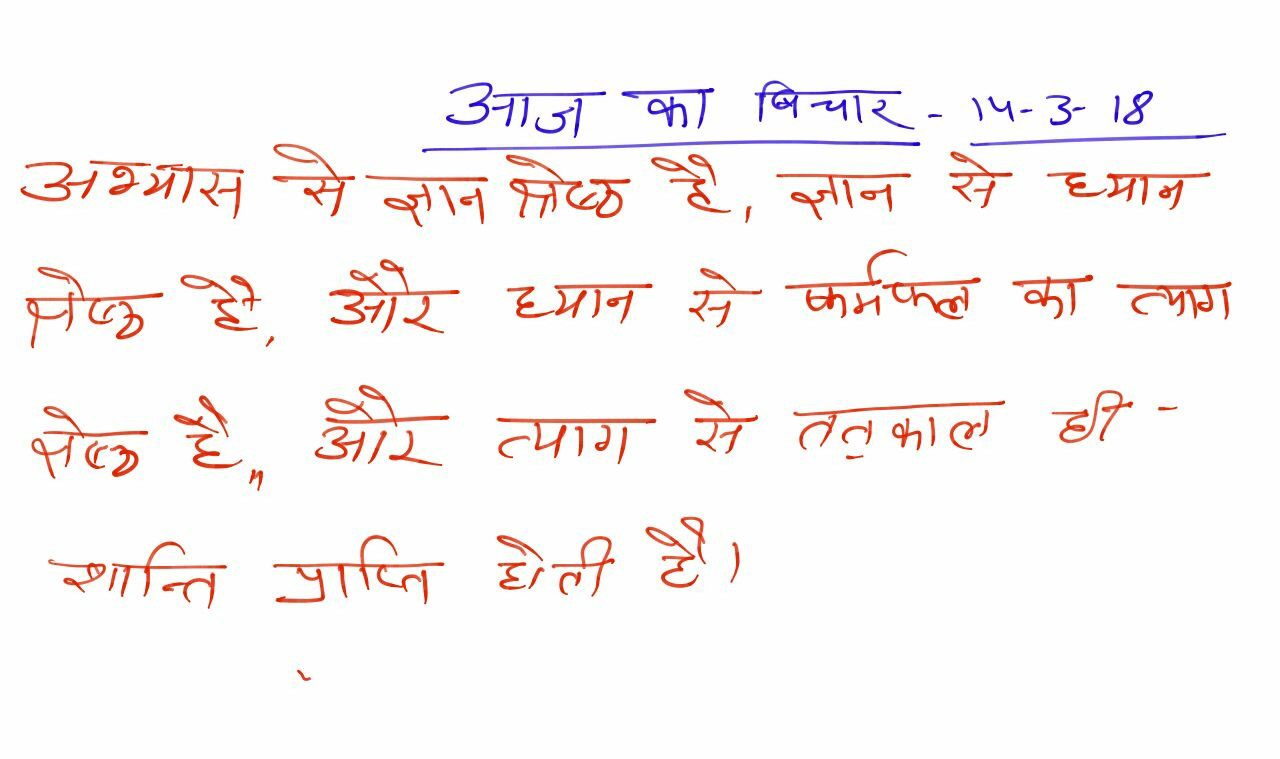 आज का बिचार - 14-3-18
अभ्यास से ज्ञान श्रेष्ठ है, ज्ञान से ध्यान
श्रेष्ठ है, और ध्यान से कर्मफल का त्याग
श्रेष्ठ है,, और त्याग से तत्काल ही -
शान्ति प्राप्ति होती है।